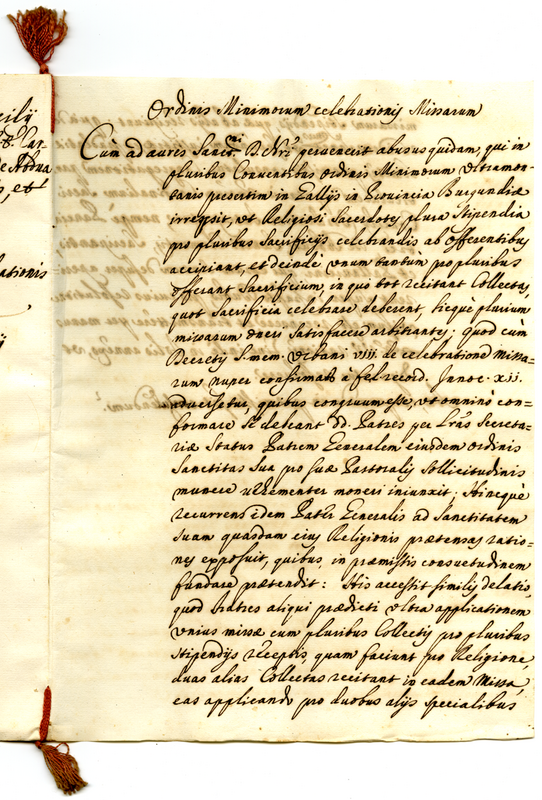 cilij
& Car
de Abdua
s, et
ationis
ij
Ordinis Minimorum celebrationis Missarum
Cùm ad aures Sanct.mi D. Nri pervenerit abusus quidam, qui in
pluribus Conventibus ordinis Minimorum Ultramon-
tanis presertim in Gallijs in Provincia Burgundiæ
irrepsit, ut Religiosi Sacerdotes plura Stipendia
pro pluribus Sacrificijs celebrandis ab offerentibus
accipiant, et deindè unum tantum pro pluribus
offerant Sacrificium, in quo tot recitant Collectas,
quot Sacrificia celebrare deberent, sicquè plurium
missarum oneri satisfacere arbitrantes; quod cùm
Decretis S. mem. Urbani VIII. de celebratione missa=
rum nuper confirmatis à fel. record. Innoc. XII.
adversetur, quibus congruum esse, ut omninò con-
formare se debeant dd. Patres per Lrãs Secreta-
riæ Status Patrem Generalem eiusdem ordinis
Sanctitas Sua pro suæ Pastoralis sollicitudinis
munere vehementer moneri iniunxit; Hincquè
recurrens idem Pater Generalis ad Sanctitatem
suam quasdam eius Religionis prætensas ratio=
nes exposuit, quibus in præmissis consuetudinem
fundare prætendit: His accessit similis delatio,
quod fratres aliqui prædicti ultra applicationem
unius missæ cum pluribus Collectis pro pluribus
stipendijs receptis, quam faciunt pro Religione,
duas alias Collectas recitant in eadem Missa,
eas applicando pro duobus alijs specialibus